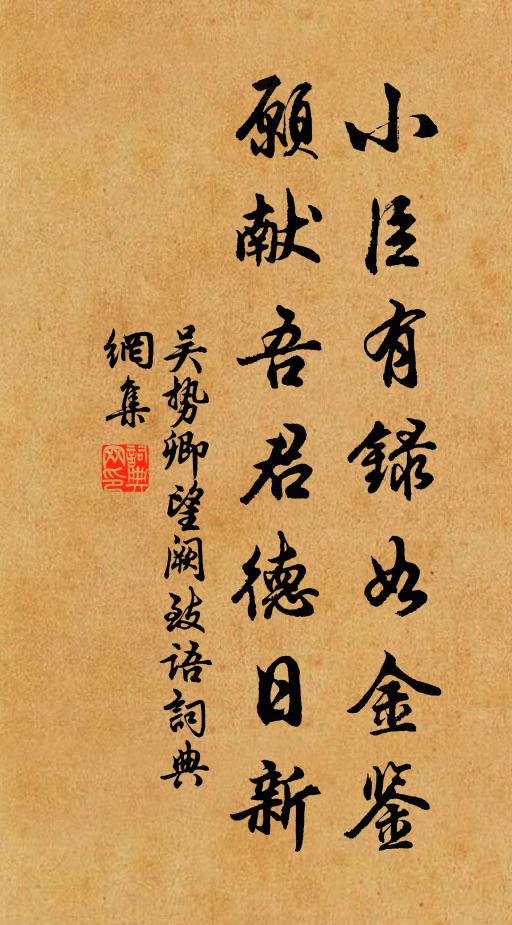 小臣有録如金鉴
願献吾君德日新
吴势卿望阙致语詞典
網集
詞典
网印